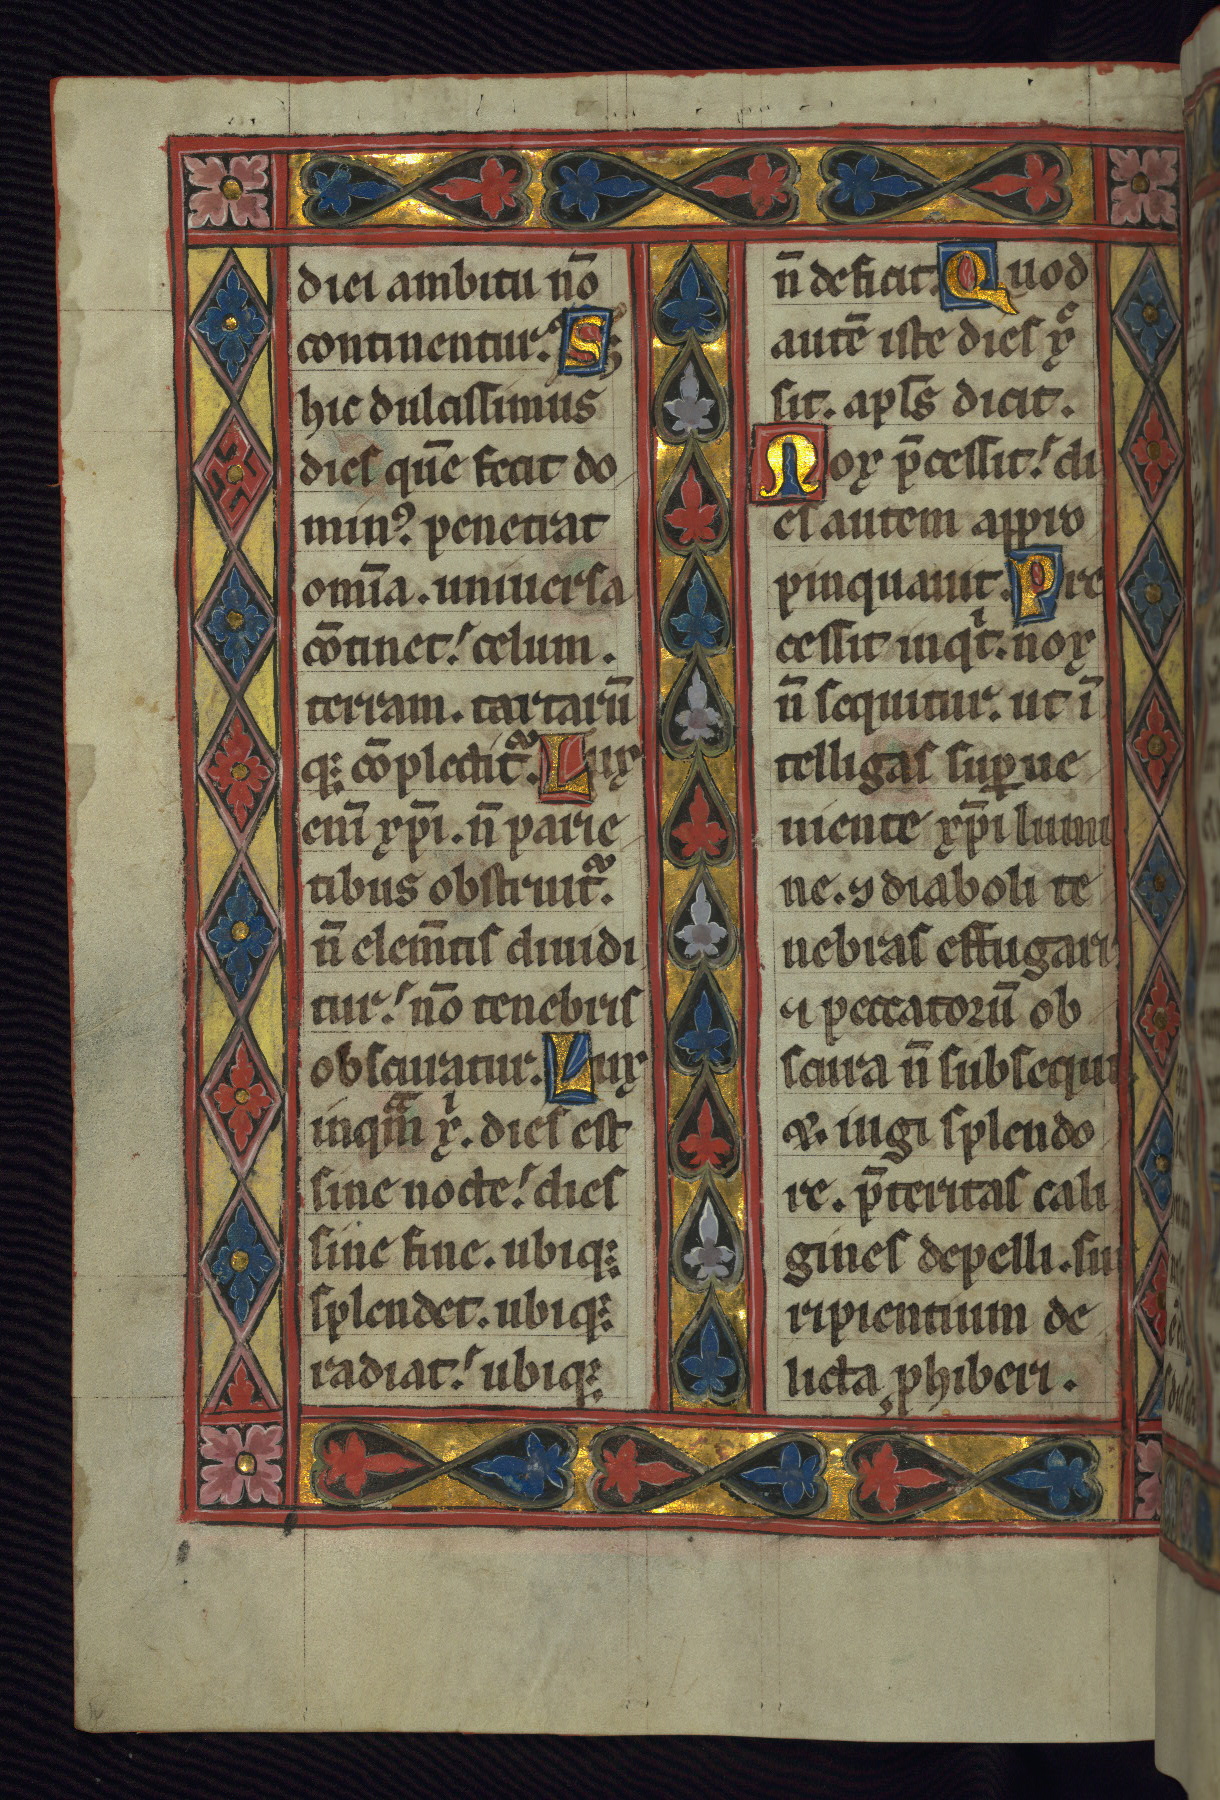 diei ambitu nō
continentur. Sꝫ
hic dulcissimus
dies quē fecit do
minꝰ penetrat
om̄ia. uniuersa
cōtinet. celum.
terram. tartarū
qꝫ cōplectit᷑. Lux
eni̅ xp̄i. n̄ parie
tibus obstruit᷑.
n̄ elem̄tis diuidi
tur. nō tenebris
obscuratur. Lux
inqᵃm xⁱ. dies est
sine nocte. dies
sine fine. ubiqꝫ
splendet. ubiqꝫ
radiat. ubiqꝫ
n̄ deficit. Quod
autē iste dies xᶜ
sit. apl̄s dicit.
Nox p̄cessit. di
es autem appro
pinquauit. Pre
cessit inqⁱt. nox
n̄ sequitur. ut ī
telligas suꝑue
niente xp̄i lumi
ne. ⁊ diaboli te
nebras effugari
⁊ peccatorū ob
scura n̄ subsequi
qꝛ. iugi splendo
re. p̄teritas cali
gines depelli. sur
ripientium de
licta ꝓhiberi.